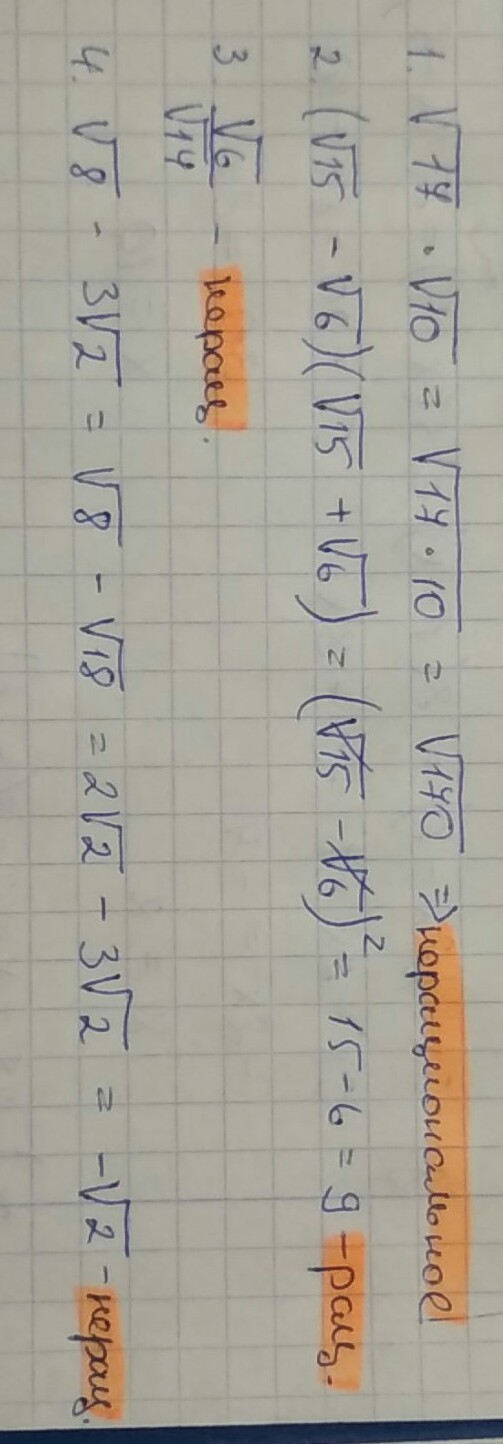 1. √14 · √10 = √14 · 10 = √140 ⇒ нерациональное
2. (√15 - √6)(√15 + √6) = (√15 - √6)² = 15 - 6 = 9 - рац.
3. √6/√14 - нерац.
4. √8 - 3√2 = √8 - √18 = 2√2 - 3√2 = -√2 - нерац.